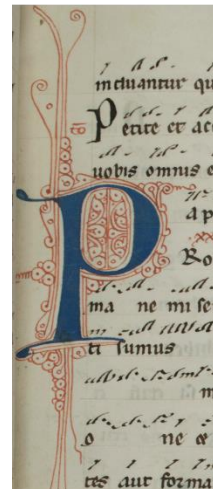 induantur qu
Petite et ac
uobis omnis e
P
a p
Ro
ma ne mi se
ti sumus
m
o ne e
tes aut forma